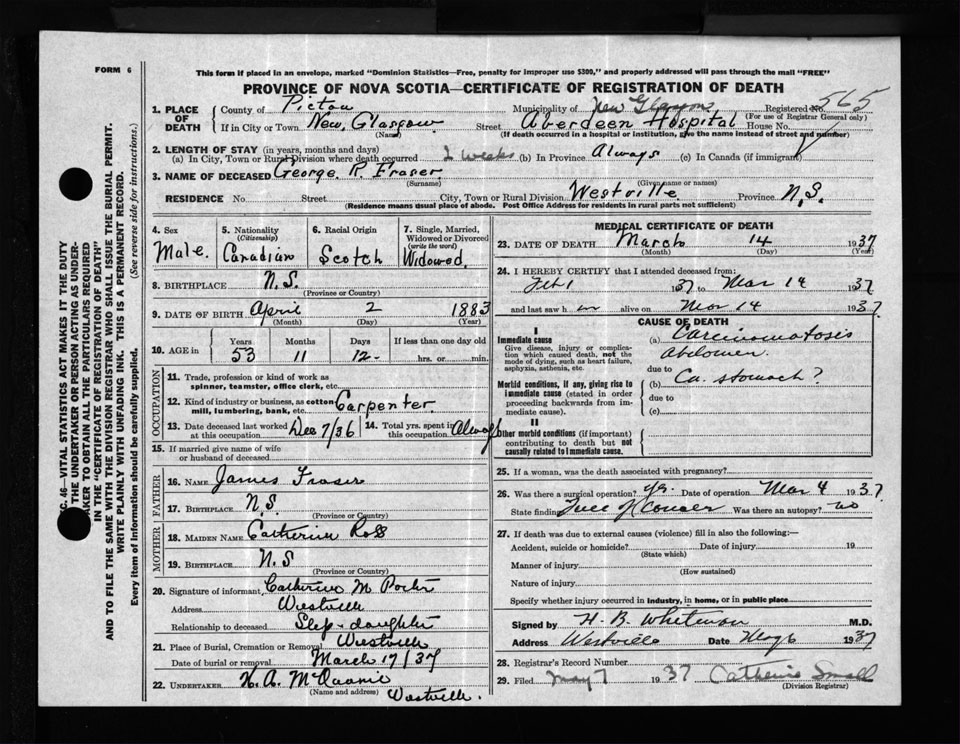 FORM 6
This form if placed in an envelope, marked "Dominion Statistics—Free, penalty for improper use $300," and properly addressed will pass through the mail "FREE"
PROVINCE OF NOVA SCOTIA—CERTIFICATE OF REGISTRATION OF DEATH
C. 46—VITAL STATISTICS ACT MAKES IT THE DUTY
THE UNDERTAKER OR PERSON ACTING AS UNDER-
AKER TO OBTAIN ALL THE PARTICULARS REQUIRED
IN THE "CERTIFICATE OF REGISTRATION OF DEATH"
AND TO FILE THE SAME WITH THE DIVISION REGISTRAR WHO SHALL ISSUE THE BURIAL PERMIT.
WRITE PLAINLY WITH UNFADING INK. THIS IS A PERMANENT RECORD.
Every item of information should be carefully supplied. (See reverse side for instructions.)
1. PLACE OF DEATH
County of Pictou Municipality of New Glasgow Registered No. 565
(For use of Registrar General only)
If in City or Town New Glasgow Street Aberdeen Hospital House No.
(Name) (If death occurred in a hospital or institution, give the name instead of street and number)
2. LENGTH OF STAY (in years, months and days)
(a) In City, Town or Rural Division where death occurred 2 weeks (b) In Province Always (c) In Canada (if immigrant)
3. NAME OF DECEASED George R. Fraser
(Surname) (Given name or names)
RESIDENCE No Street City, Town or Rural Division Westville Province N.S.
(Residence means usual place of abode. Post Office Address for residents in rural parts not sufficient)
4. Sex Male.
5. Nationality (Citizenship) Canadian
6. Racial Origin Scotch
7. Single, Married, Widowed or Divorced (write the word) Widowed.
8. BIRTHPLACE N.S.
(Province or Country)
9. DATE OF BIRTH April 2 1883
(Month) (Day) (Year)
10. AGE in Years Months Days If less than one day old
53 11 12 hrs. or min.
OCCUPATION
11. Trade, profession or kind of work as spinner, teamster, office clerk, etc.
12. Kind of industry or business, as cotton mill, lumbering, bank, etc. Carpenter.
13. Date deceased last worked at this occupation Dec 7/36
14. Total yrs. spent in this occupation Always
15. If married give name of wife or husband of deceased
FATHER
16. NAME James Fraser
17. BIRTHPLACE N.S.
(Province or Country)
MOTHER
18. MAIDEN NAME Catherine Ross
19. BIRTHPLACE N.S
(Province or Country)
20. Signature of informant Catherine M Porter
Address Westville
Relationship to deceased Step-daughter
21. Place of Burial, Cremation or Removal Westville
Date of burial or removal March 17/37
22. UNDERTAKER
(Name and address) Westville.
MEDICAL CERTIFICATE OF DEATH
23. DATE OF DEATH March 14 1937
(Month) (Day) (Year)
24. I HEREBY CERTIFY that I attended deceased from:
Feb 1 1937 to Mar 14 1937
and last saw h im alive on Mar 14 1937
CAUSE OF DEATH
I
Immediate cause
Give disease, injury or complication which caused death, not the mode of dying, such as heart failure, asphyxia, asthenia, etc.
(a) Carcinomatosis
Abdomen.
due to
Morbid conditions, if any, giving rise to immediate cause (stated in order proceeding backwards from immediate cause).
(b) Ca. stomach?
due to
(c)
II
Other morbid conditions (if important) contributing to death but not causally related to immediate cause.
25. If a woman, was the death associated with pregnancy?
26. Was there a surgical operation? yes. Date of operation Mar 4 1937
State finding Full of Cancer Was there an autopsy? no
27. If death was due to external causes (violence) fill in also the following:—
Accident, suicide or homicide? Date of injury 19
(State which)
Manner of injury
(How sustained)
Nature of injury
Specify whether injury occurred in industry, in home, or in public place
Signed by H. B. Whitman M.D.
Address Westville Date May 6 1937
28. Registrar's Record Number
29. Filed May 7 1937 Catherine Small
(Division Registrar)